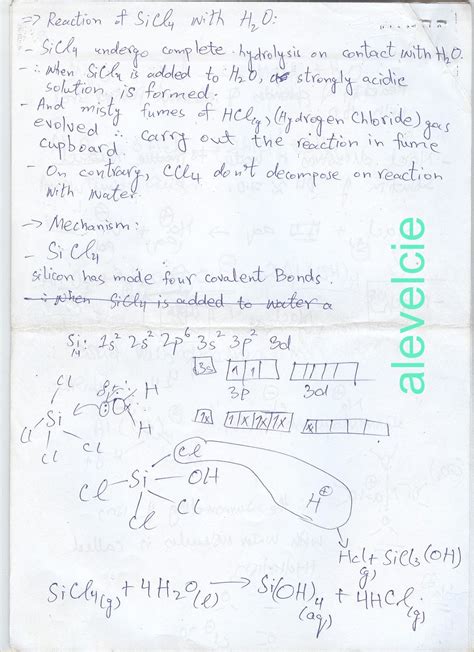 => Reaction of SiCl4 with H2O:
- SiCl4 undergo complete hydrolysis on contact with H2O.
- ∴ When SiCl4 is added to H2O, strongly acidic
solution is formed.
- And misty fumes of HCl(g) (Hydrogen Chloride) gas
evolved ∴ carry out the reaction in fume
cupboard.
- On contrary, CCl4 don't decompose on reaction
with water.
-> Mechanism:
- SiCl4
silicon has made four covalent Bonds.
∴ When SiCl4 is added to water a
Si: 1s² 2s² 2p⁶ 3s² 3p² 3d
14
3s
3p 3d
Cl H
Cl Si O
Cl Cl H
Cl
Cl - Si - OH
Cl Cl H⊕
HCl + SiCl3(OH)
(g)
SiCl4(g) + 4H2O(l) -> Si(OH)4 (aq) + 4HCl(g)
alevelcie